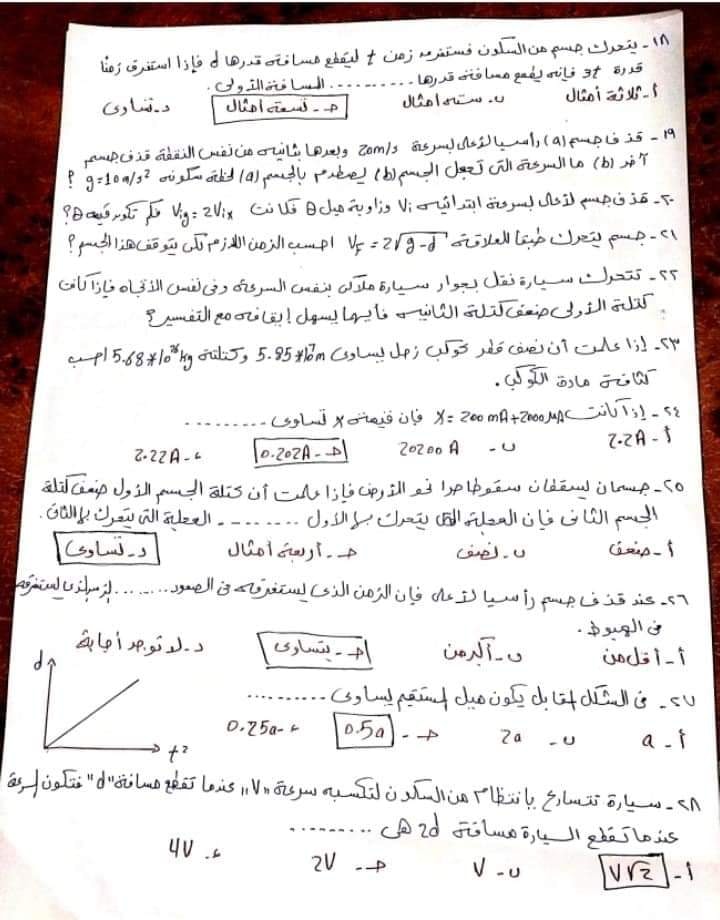 ١٨- يتحرك جسم من السكون فستغرق زمن t ليقطع مسافة قدرها d فإذا استغرق زمنًا
قدرة 3t فإنه يقطع مسافة قدرها .......... المسافة الأولى.
أ- ثلاثة أمثال ب- ستة أمثال حـ- تسعة أمثال د- تساوى
١٩- قذف جسم (a) رأسيا لأعلى بسرعة 20m/s وبعدها بثانية من نفس النقطة قذف جسم
آخر (b) ما السرعة التى تجعل الجسم (b) يصطدم بالجسم (a) لحظة سكونه g=10m/s² ؟
٢٠- قذف جسم لأعلى بسرعة ابتدائية Vi وزاوية ميل θ فكانت Viy = 2Vix فكم تكون قيمة θ؟
٢١- جسم يتحرك طبقا للعلاقة Vf = 2√9-d احسب الزمن اللازم لكى يتوقف هذا الجسم؟
٢٢- تتحرك سيارة نقل بجوار سيارة ملاكى بنفس السرعة وفى نفس الأتجاه فإذا كانت
كتلة الأولى ضعف كتلة الثانية فأيهما يسهل إيقافه مع التفسير؟
٢٣- إذا علمت أن نصف قطر كوكب زحل يساوى 5.85*10⁷m وكتلته 5.68*10²⁶kg احسب
كثافة مادة الكوكب.
٢٤- إذا كانت X= 200mA+2000μA فإن قيمة X تساوى ..........
أ- 2.2A ب- 20200A حـ- 0.202A ء- 2.22A
٢٥- جسمان يسقطان سقوطا حرا نحو الأرض فإذا علمت أن كتلة الجسم الأول ضعف كتلة
الجسم الثانى فإن العجلة التى يتحرك بها الأول .......... العجلة التى يتحرك بها الثانى.
أ- ضعف ب- نصف حـ- أربعة أمثال د- تساوى
٢٦- عند قذف جسم رأسيا لأعلى فإن الزمن الذى يستغرقه فى الصعود .......... الزمن الذى يستغرقه
فى الهبوط.
أ- أقل من ب- أكبر من حـ- يتساوى د- لا توجد أجابة
٢٧- فى الشكل المقابل يكون ميل المستقيم يساوى ..........
أ- a ب- 2a حـ- 0.5a ء- 0.25a
d
t²
٢٨- سيارة تتسارع بانتظام من السكون لتكسبه سرعة "V" عندما تقطع مسافة "d" فتكون السرعة
عندما تقطع السيارة مسافة 2d هى ..........
أ- V√2 ب- V حـ- 2V ء- 4V